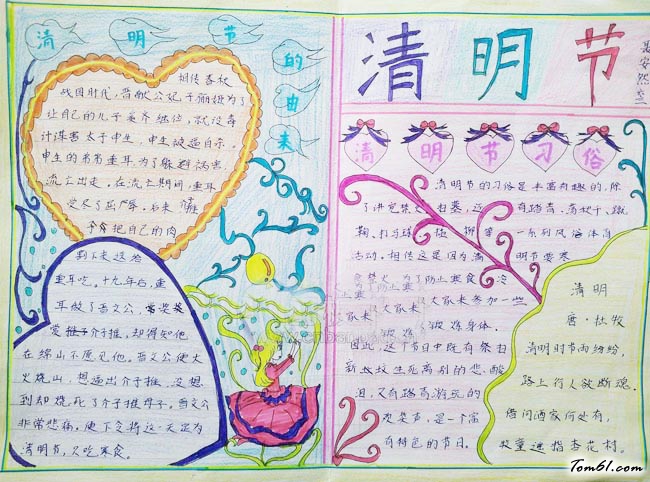 清明节的由来
相传春秋
战国时代,晋献公妃子丽姬为了
让自己的儿子奚齐继位,就设毒
计谋害太子申生,申生被逼自杀。
申生的弟弟重耳为了躲避祸害,
流亡出走,在流亡期间,重耳
受尽了屈辱。后来
介子推把自己的肉
割下来送给
重耳吃。十九年后,重
耳做了晋文公,
爱介子推,却得知他
在绵山不愿见他。晋文公便大
火烧山,想逼出介子推,没想
到却烧死了介子推母子,晋文公
非常悲痛,便下令将这一天定为
清明节,只吃寒食。
清明节
清明节习俗
清明节的习俗是丰富有趣的,除
了讲究禁火、扫墓,还有踏青、荡秋千、蹴
鞠、打马球、插柳等一系列风俗体育
活动。相传这是因为清明节要寒
食禁火,为了防止寒食冷
大家来参加一些
锻炼身体。
因此,这个节日中既有祭扫
新坟生死离别的悲酸
泪,又有踏青游玩的
欢笑声,是一个富
有特色的节日。
清明
唐·杜牧
清明时节雨纷纷,
路上行人欲断魂。
借问酒家何处有,
牧童遥指杏花村。
Tom61.com